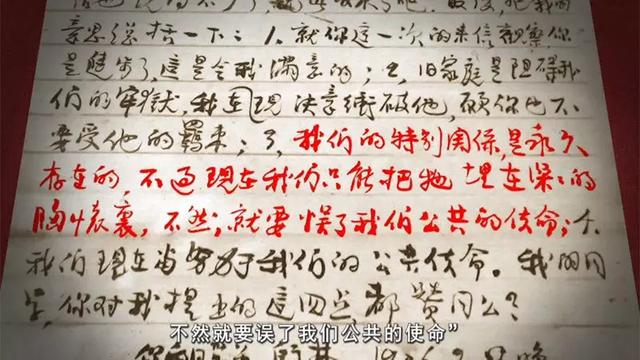 意思总括一下：1、就你這一次的来信觀察，你
是進步了，這是令我滿意的；2、旧家庭是阻碍我
们的牢獄，我已現决意衝破他，願你也不
要受他的羈束；3、我们的特别関係，是永久
存在的，不過現在我们只能把她埋在深深的
胸懷裏，不然，就要悞了我们公共的使命；4、
我们現在当努力于我们的公共使命。我的同
学，你对我提出的這四点都賛同么？
不然就要误了我们公共的使命”